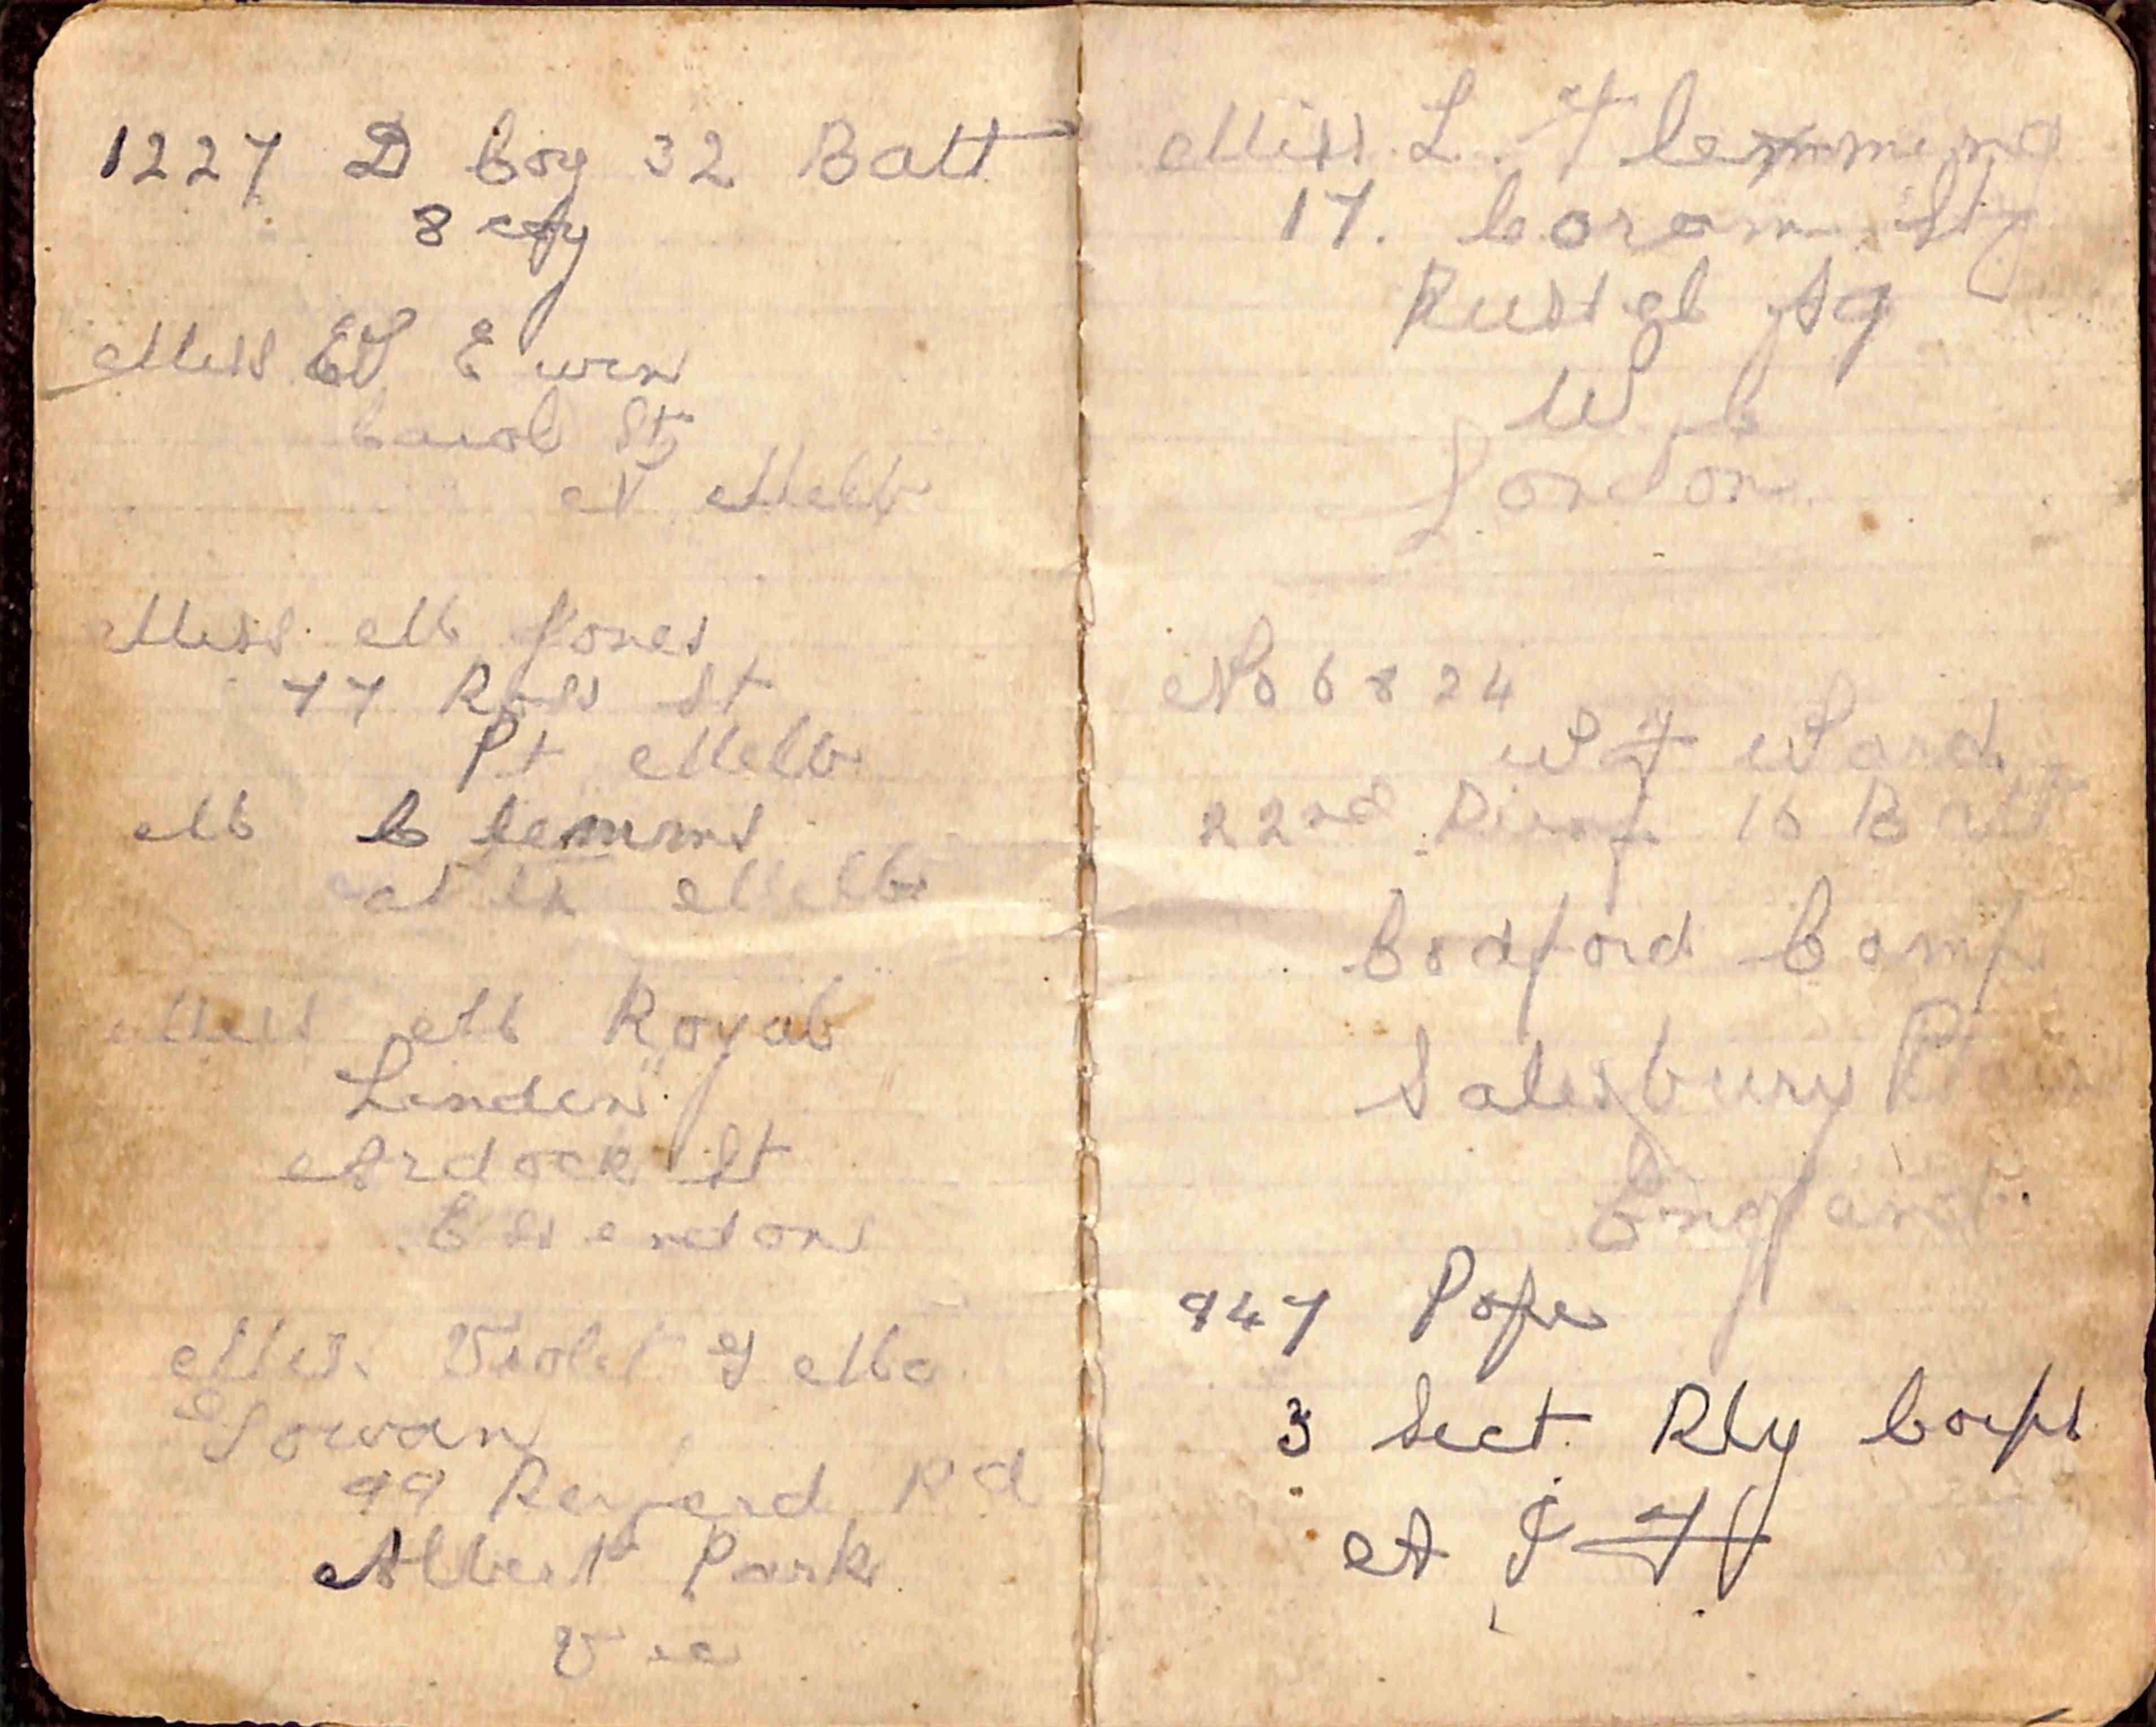 1227 D Coy 32 Batt
8 coy
Miss E Ewen
St
N Melb
Miss M Jones
77 Ross St
Pt Melb
M C Lemms
Melb
Miss M Royal
"Linden"
Ardock St
Essendon
Miss Violet J Mc
Gowan
99 Rd
Albert Park
Vic
Miss L. Flemming
17. Coram St
Russel Sq
W.C
London
No 6824
W F Ward
22nd Reinf 16 Batt
Codford Camp
Salisbury
England
947 Pope
3 Sect Rly Corps
A I F